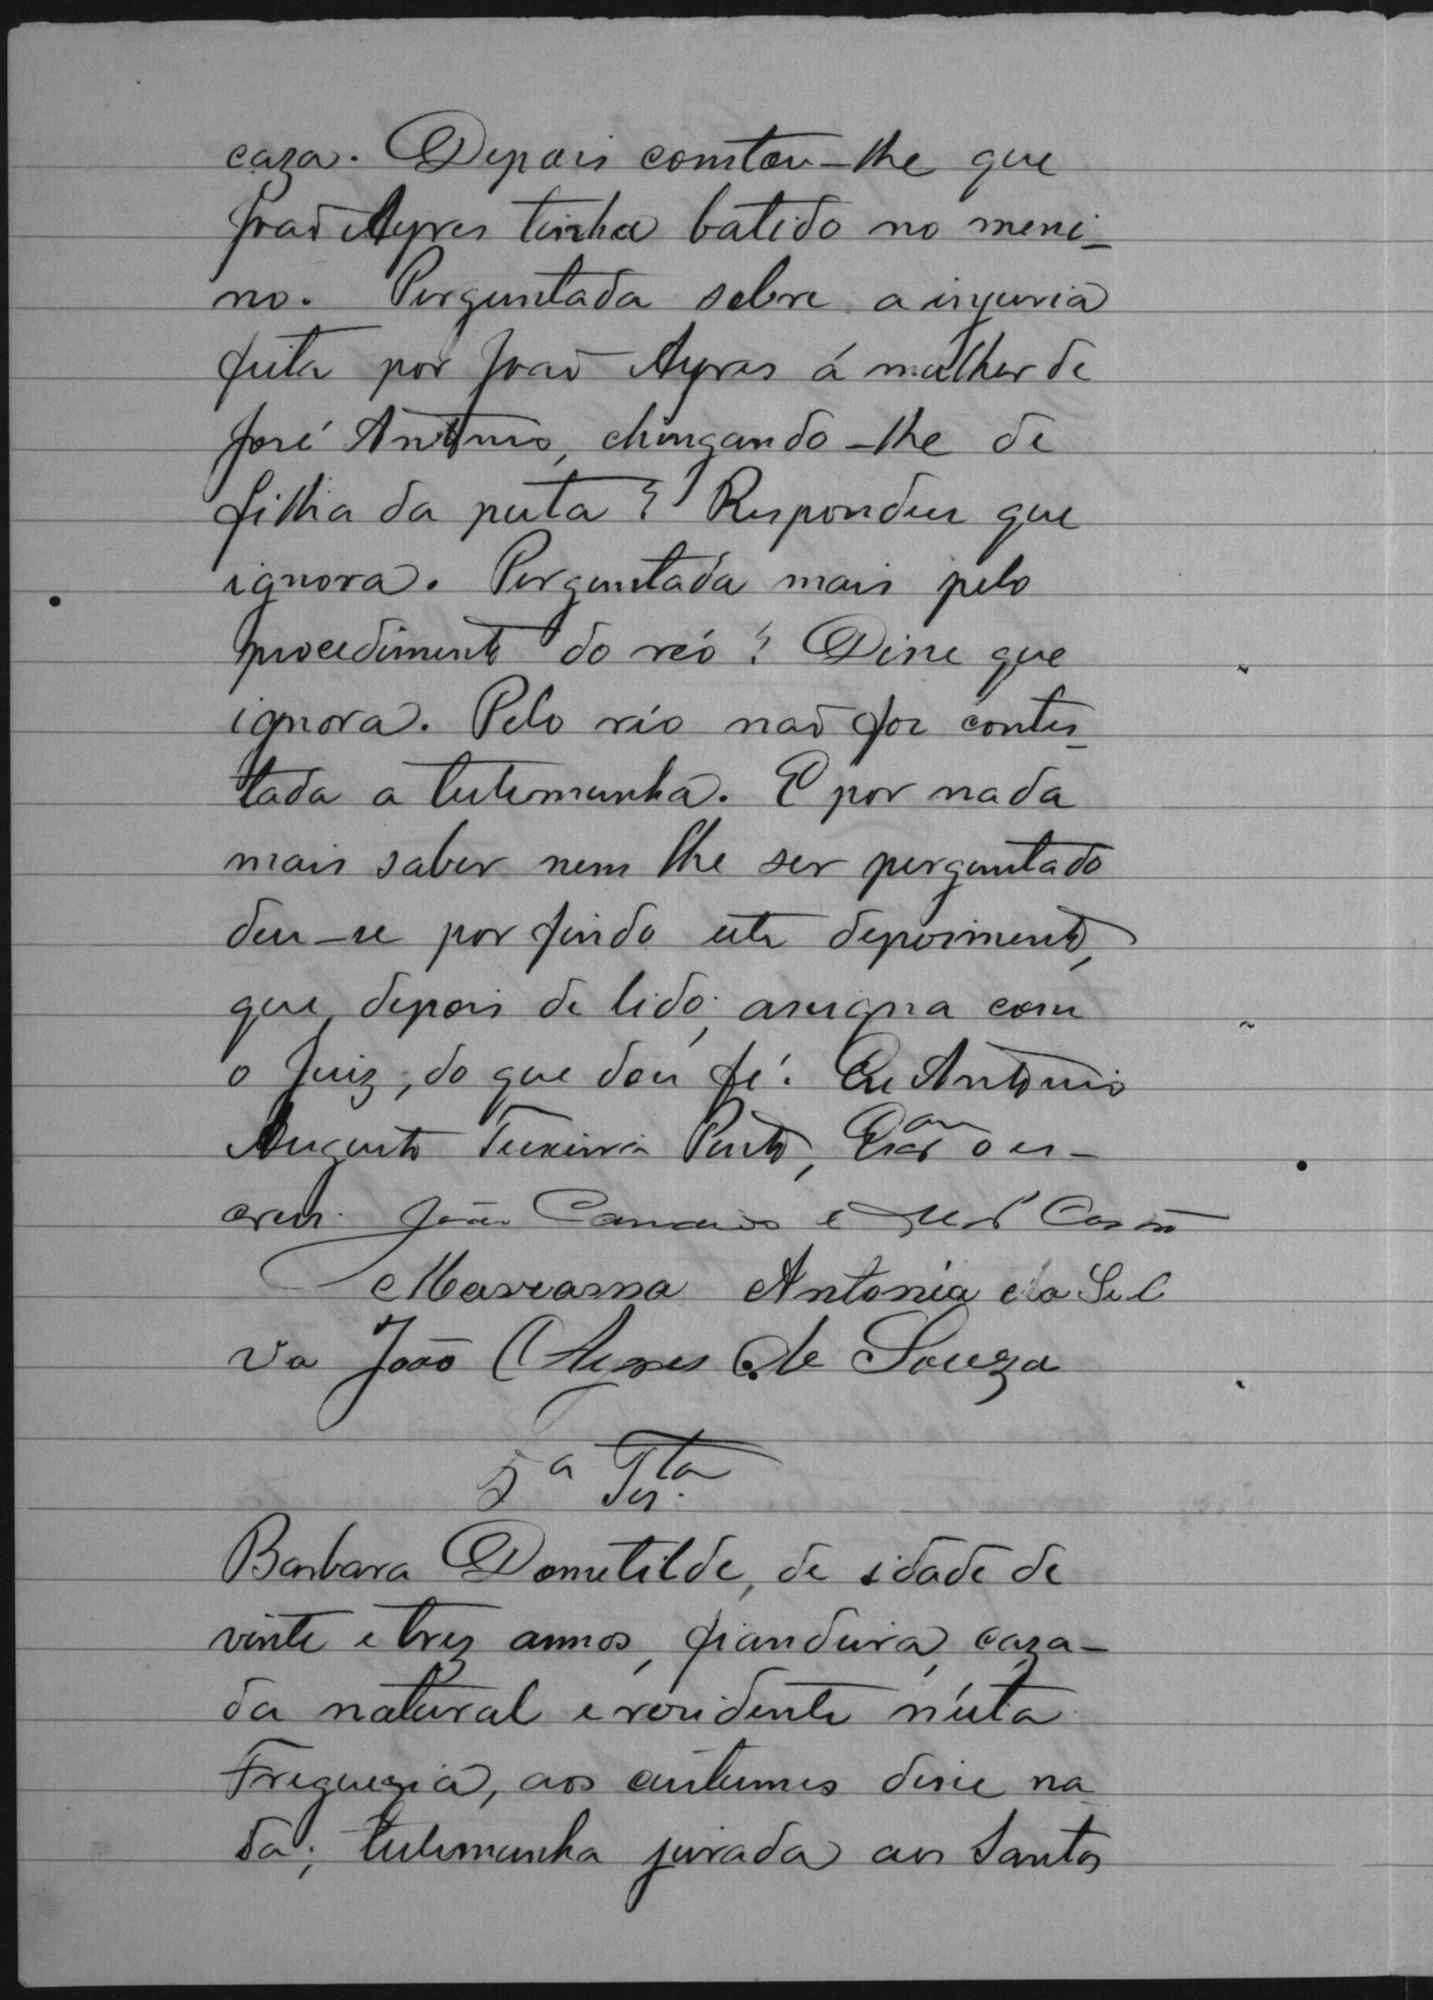 caza. Depois constou-lhe que
João Ayres tinha batido no meni-
no. Perguntada sobre a injuria
feita por João Ayres á mulher de
José Antonio, chingando-lhe de
filha da puta? Respondeu que
ignora. Perguntada mais pelo
procedimento do réo? Disse que
ignora. Pelo réo não foi contes-
tada a testemunha. E por nada
mais saber nem lhe ser perguntado
deu-se por findo este depoimento,
que, depois de lido, assigna com
o Juiz, do que dou fé. Eu Antonio
Augusto Teixeira Pinto, Escam o es-
crevi. João
Marianna Antonia da Sil
va João Ayres de Souza
5a Testa
Barbara Dometilde, de idade de
vinte e trez annos, fiandeira, caza-
da natural e rezidente n'esta
Freguezia, aos custumes disse na
da; testemunha jurada aos Santos